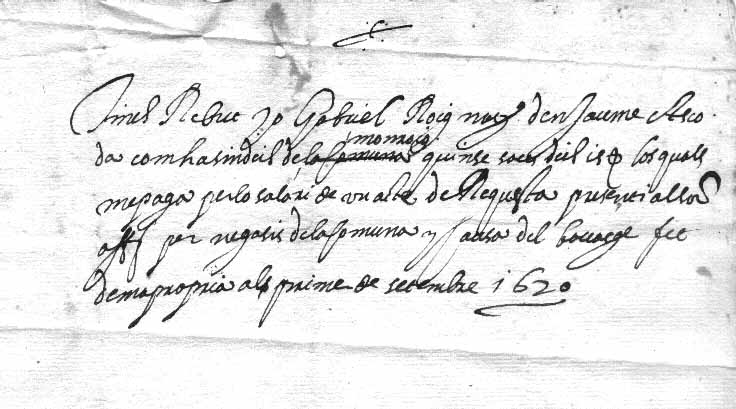 Tinch Rebut yo Gabriel Roig noty den Jaume Esco
da com ha sindich de la comuna monroig quinse sous dich is los quals
me paga per lo salari de un acte de Requesta presenti al
per negosis de la comuna y causa del bovatge fet
de ma propria als prime de setembre 1620